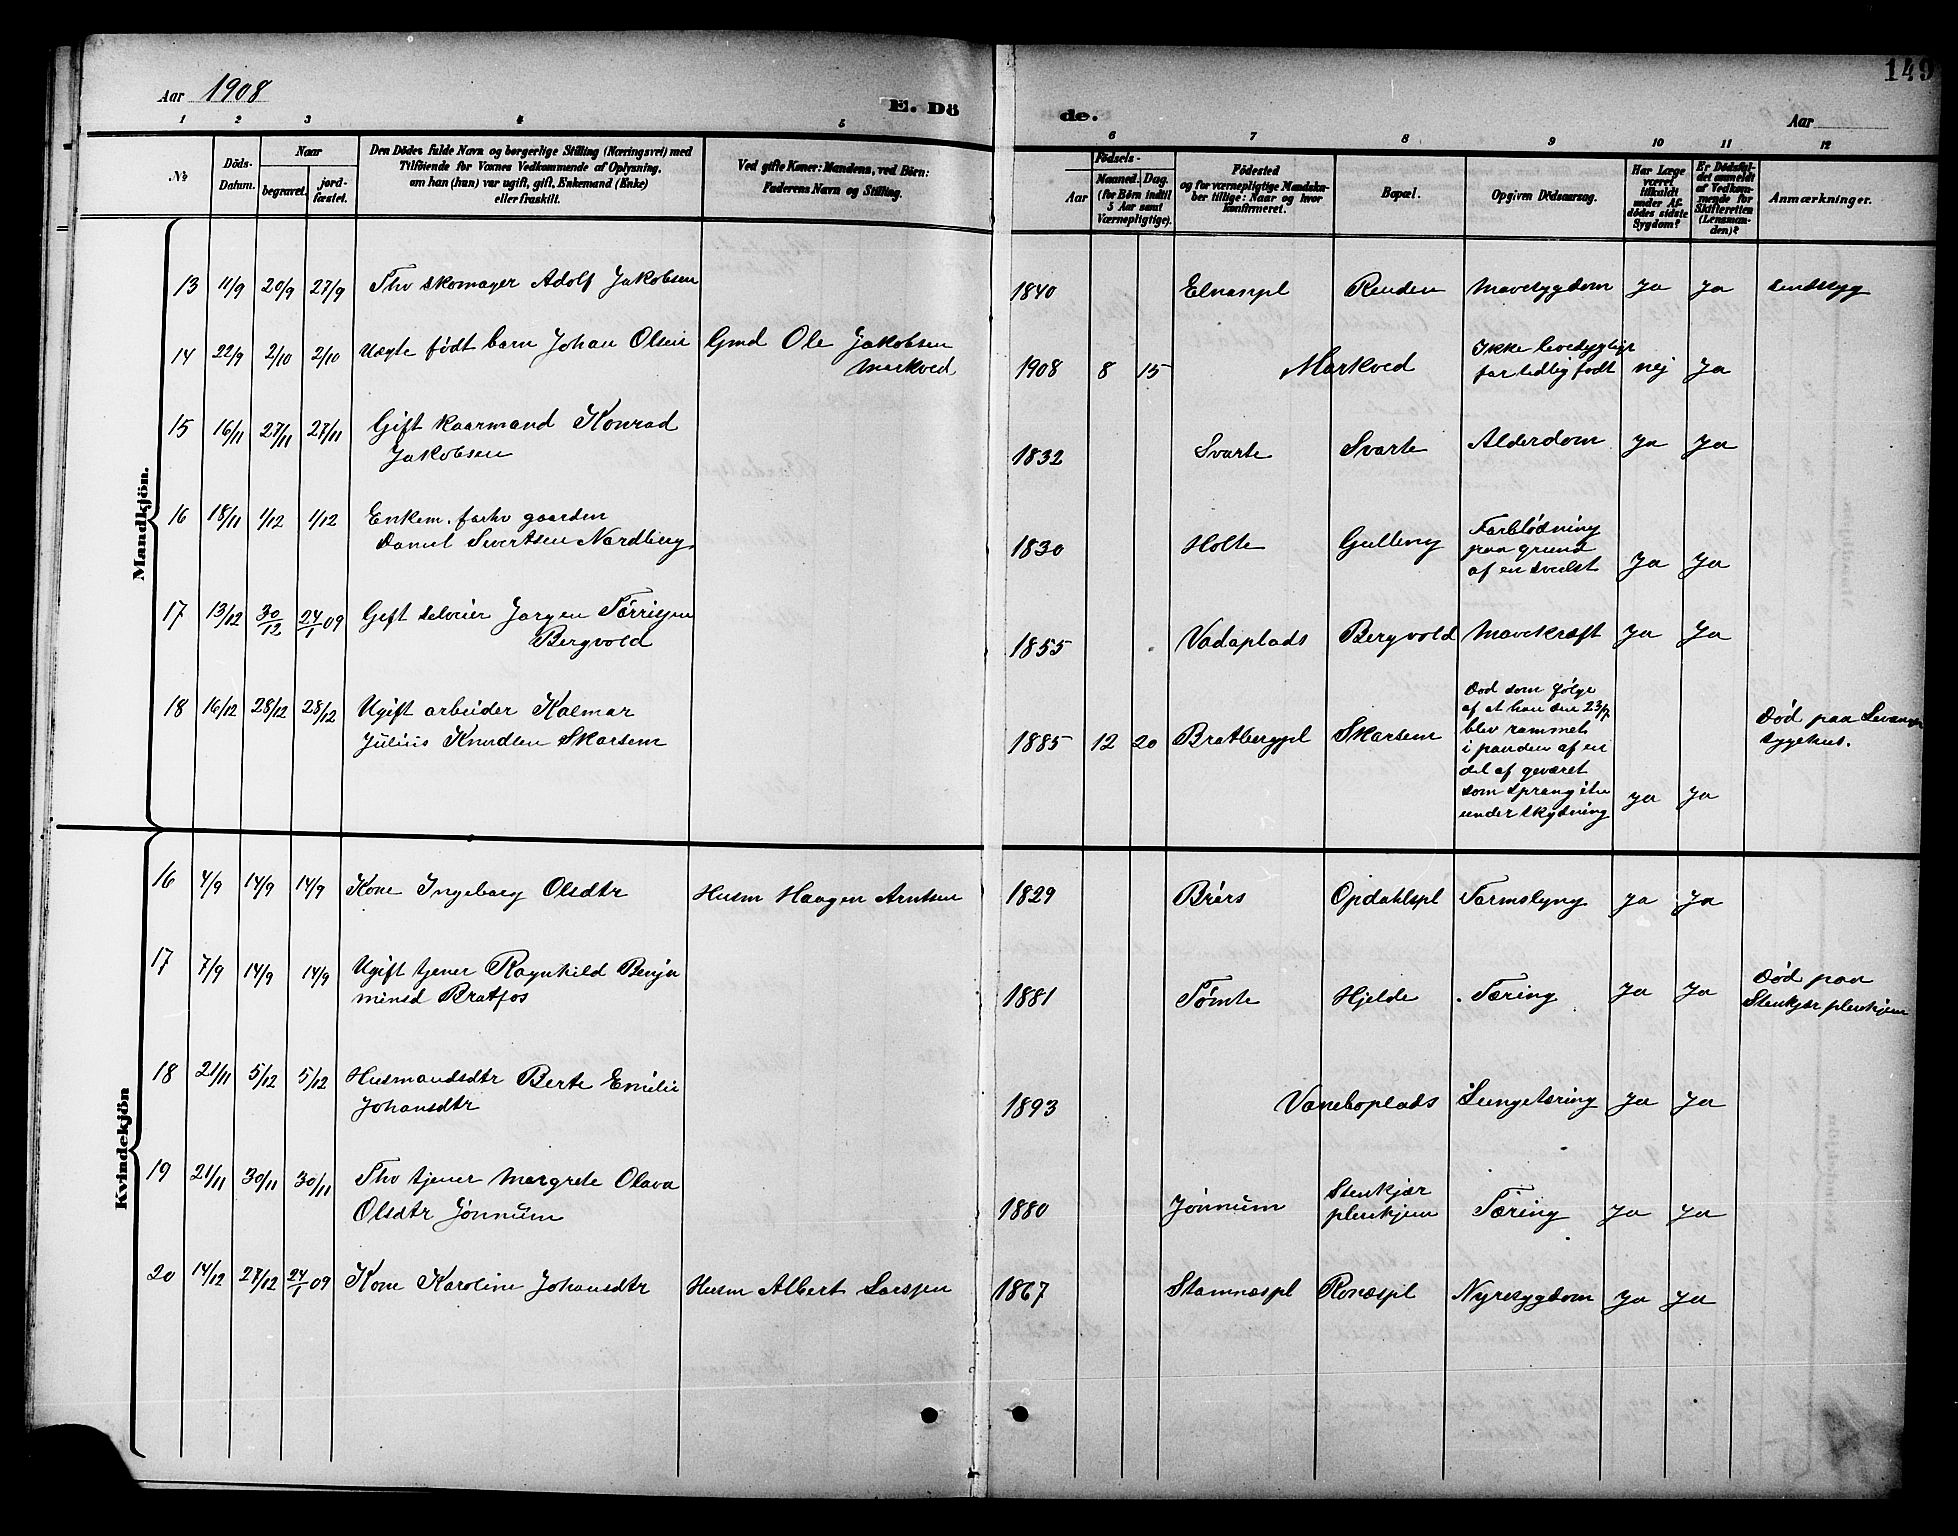 149
Aar 1908
E. Dö
de.
Aar
1 2 3 4 5 6 7 8 9 10 11 12
No
Döds-Datum.
Naar
begravet.
jord-fæstet.
Den Dödes fulde Navn og borgerlige Stilling (Næringsvei) med
Tilföiende for Voxnes Vedkommende af Oplysning,
om han (hun) var ugift, gift, Enkemand (Enke)
eller fraskilt.
Ved gifte Koner: Mandens, ved Börn:
Faderens Navn og Stilling.
Födsels-
Aar
Maaned. Dag.
(for Börn indtil
5 Aar samt
Værnepligtige).
Födested
og for værnepligtige Mandska-
ber tillige: Naar og hvor
konfirmeret.
Bopæl.
Opgiven Dödsaarsag.
Har Læge
været
tilkaldt
under Af-
dödes sidste
Sygdom?
Er Dödsfal-
det anmeldt
af Vedkom-
mende for
Skifteretten
(Lensman-
den)?
Anmærkninger.
Mandkjön.
13 11/9 20/9 27/9 Fhv skomager Adolf Jakobsen 1840 Elnanspl Reuden Mavesygdom Ja Ja sindssyg
14 22/9 2/10 2/10 Uægte født barn Johan Olsen Gmd Ole Jakobsen
Markved 1908 8 15 Markved Ikke levedygtigt
for tidlig født nej Ja
15 16/11 27/11 27/11 Gift kaarmand Konrad
Jakobsen 1832 Svarte Svarte Alderdom Ja Ja
16 18/11 1/12 1/12 Enkem. forhv gaardm
Daniel Sivertsen Nordberg 1830 Holte Gulleny Forblødning
paa grund
af en svulst Ja Ja
17 13/12 30/12 24/1 09 Gift selveier Jørgen Tørrisen
Bergvold 1855 Vadaplads Bergvold Mavekræft Ja Ja
18 16/12 28/12 28/12 Ugift arbeider Kalmar
Julius Knudsen Skarsem 1885 12 20 Bratbergpl Skarsem Død som følge
af at han den 23/7
blev rammet
i panden af en
del af geværet
som sprang itu
under skydning Ja Ja Død paa Levanger
sygehus.
Kvindekjön
16 4/9 14/9 14/9 Kone Ingeborg Olsdtr Husm Haagen Arntsen 1829 Brørs Opdahlspl Tarmslyng Ja Ja
17 7/9 14/9 14/9 Ugift tjener Ragnhild Benja
minsd Bratfos 1881 Tømte Hjelde Tæring Ja Ja Død paa
Stenkjær pleiehjem
18 21/11 5/12 5/12 Husmandsdtr Berte Emilie
Johansdtr 1893 Vaneboplads Lungetæring Ja Ja
19 21/11 30/11 30/11 Fhv tjener Margrete Olava
Olsdtr Jønnum 1880 Jønnum Stenkjær
pleiehjem Tæring Ja Ja
20 14/12 27/12 24/1 09 Kone Karoline Johansdtr Husm Albert Larssen 1867 Stamnæspl Ronæspl Nyresygdom Ja Ja